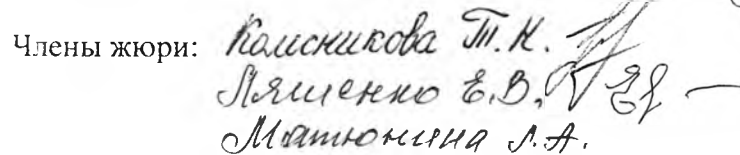 Члены жюри: Колесникова Т.Н.
Ляшенко Е.В.
Матюнина Л.А.